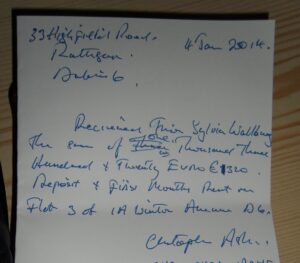 33 Highfield Road.
Rathgar.
Dublin 6
4 Jan 2014.
Received From Sylvia
The sum of one Thousand Three
Hundred & Twenty Euro €1320.
Deposit & First Months Rent on
Flat 3 of 1A Winton Avenue D6.
Christopher